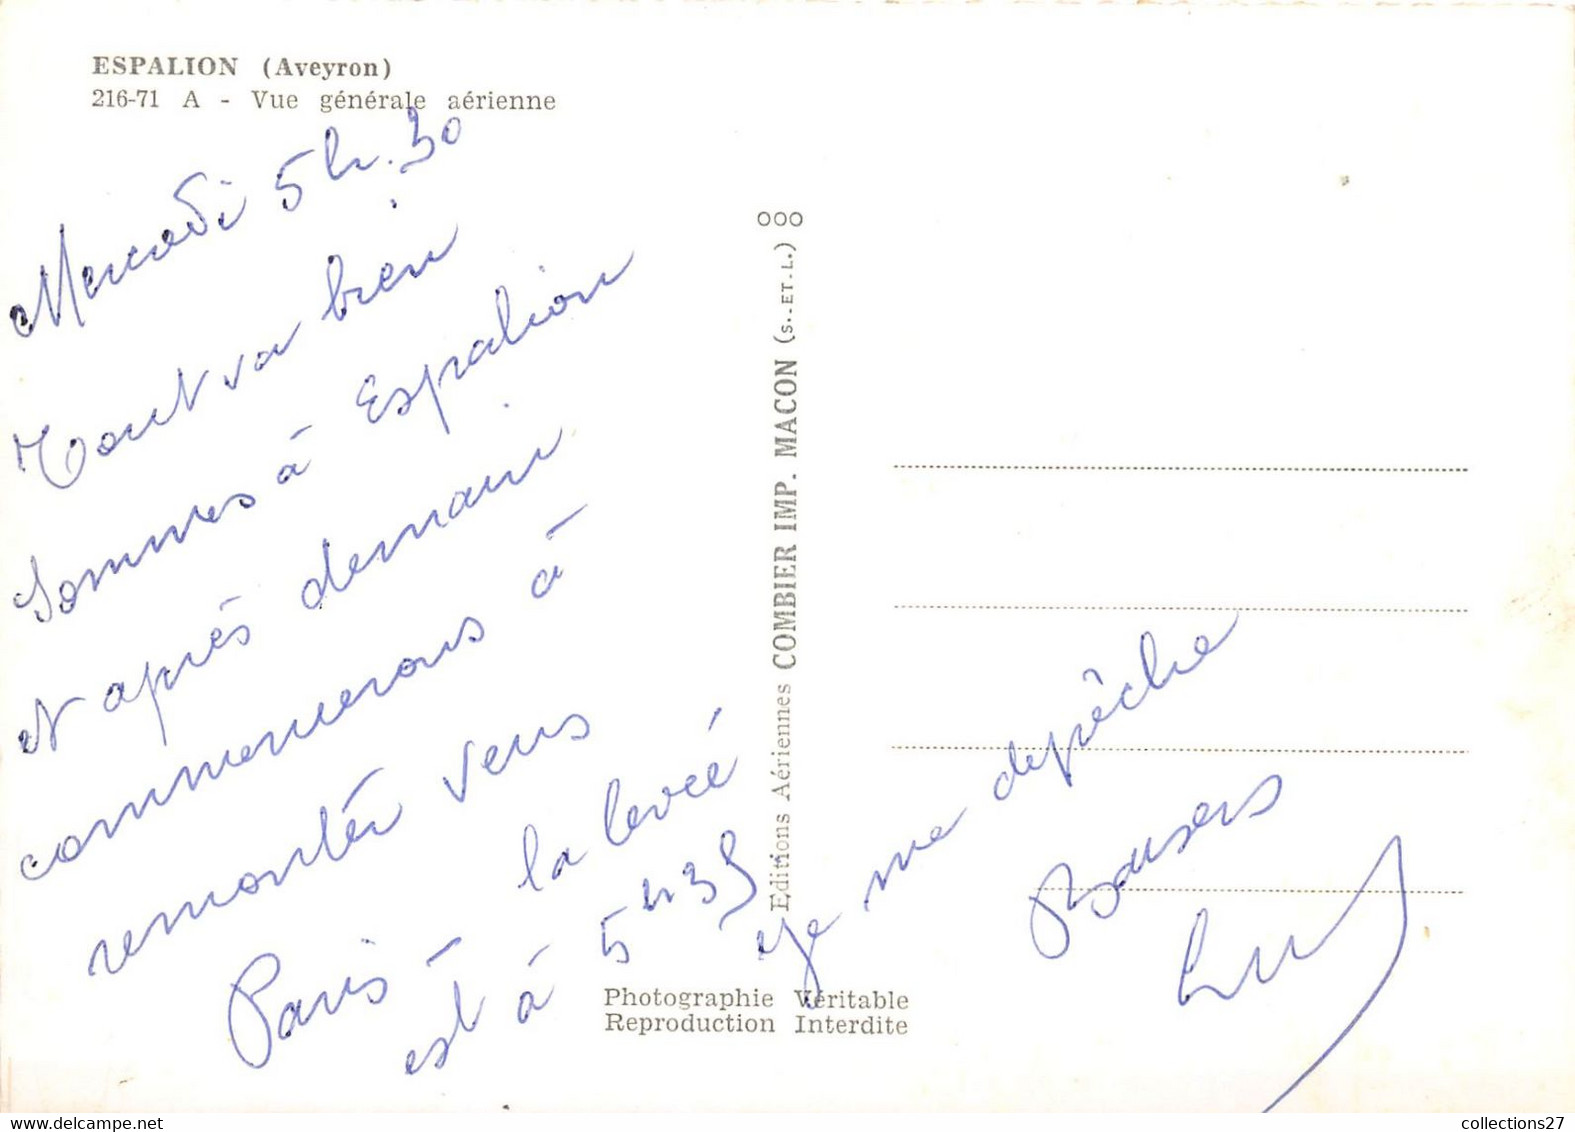 ESPALION (Aveyron)
216-71 A - Vue générale aérienne
Mercredi 5h.30
Tout va bien
Sommes à Espalion
et après demain
commencerons à
remonter vers
Paris - la levée
est à 5h35
je me dépêche
Baisers
OOO
Editions Aériennes COMBIER IMP. MACON (S.-ET-L.)
Photographie Véritable
Reproduction Interdite
collections27